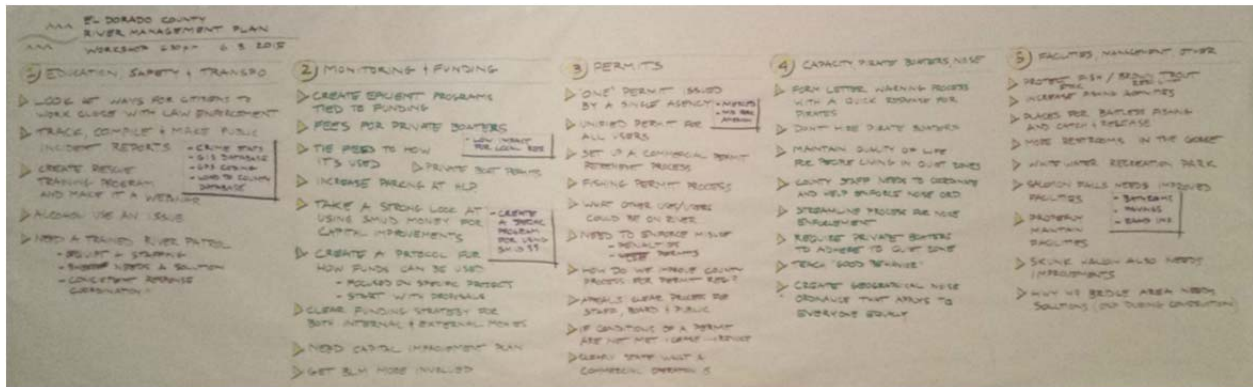 EL DORADO COUNTY
RIVER MANAGEMENT PLAN
WORKSHOP 6 8 2015
1) EDUCATION, SAFETY & TRANSPO
LOOK AT WAYS FOR CITIZENS TO
WORK CLOSE WITH LAW ENFORCEMENT
TRACK, COMPILE & MAKE PUBLIC
INCIDENT REPORTS
- CRIME STATS
- GIS DATABASE
- GPS CODING
- LOAD TO COUNTY
DATABASE
CREATE RESCUE
TRAINING PROGRAM
AND MAKE IT A WEBINAR
ALCOHOL USE AN ISSUE
NEED A TRAINED RIVER PATROL
& STAFFING
NEEDS A SOLUTION
- CONSISTENT RESPONSE
COORDINATION
2) MONITORING & FUNDING
CREATE EFFICIENT PROGRAMS
TIED TO FUNDING
FEES FOR PRIVATE BOATERS
- LOW IMPACT
FOR LOCAL RES
TIE FEED TO HOW
IT'S USED
PRIVATE BOAT PERMITS
INCREASE PARKING AT HLP
TAKE A STRONG LOOK AT
USING SMUD MONEY FOR
CAPITAL IMPROVEMENTS
- CREATE
A SPECIAL
PROGRAM
FOR USING
SMUD $$
CREATE A PROTOCOL FOR
HOW FUNDS CAN BE USED
- FOCUSED ON SPECIFIC PROJECTS
- START WITH PROPOSALS
CLEAR FUNDING STRATEGY FOR
BOTH INTERNAL & EXTERNAL MONIES
NEED CAPITAL IMPROVEMENT PLAN
GET BLM MORE INVOLVED
3) PERMITS
"ONE" PERMIT ISSUED
BY A SINGLE AGENCY
UNIFIED PERMIT FOR
ALL USERS
SET UP A COMMERCIAL PERMIT
RETIREMENT PROCESS
FISHING PERMIT PROCESS
WHAT OTHER USES/USERS
COULD BE ON RIVER
NEED TO ENFORCE MISUSE
- PENALTIES
PERMITS
HOW DO WE IMPROVE COUNTY
PROCESS FOR PERMIT REQ?
APPEALS CLEAR PROCESS FOR
STAFF, BOARD & PUBLIC
IF CONDITIONS OF A PERMIT
ARE NOT MET
CLEARLY STATE WHAT A
COMMERCIAL OPERATION IS
4) CAPACITY, PIRATE BOATERS, NOISE
FORM LETTER WARNING PROCESS
WITH A QUICK RESPONSE FOR
PIRATES
DON'T HIRE PIRATE BOATERS
MAINTAIN QUALITY OF LIFE
FOR PEOPLE LIVING IN QUIET ZONES
COUNTY STAFF NEEDS TO COORDINATE
AND HELP ENFORCE NOISE ORD
STREAMLINE PROCESS FOR NOISE
ENFORCEMENT
REQUIRE PRIVATE BOATERS
TO ADHERE TO QUIET ZONE
TEACH "GOOD BEHAVIOR"
CREATE GEOGRAPHICAL NOISE
ORDINANCE THAT APPLYS TO
EVERYONE EQUALLY
5) FACILITIES, MANAGEMENT OTHER
PROTECT FISH / BROWN TROUT
INCREASE FISHING ACTIVITIES
PLACES FOR BAITLESS FISHING
AND CATCH & RELEASE
MORE RESTROOMS IN THE GORGE
WHITE WATER RECREATION PARK
SALMON FALLS NEEDS IMPROVED
FACILITIES
- BATHROOMS
- PARKING
PROPERLY
MAINTAIN
FACILITIES
SKUNK HALOW ALSO NEEDS
IMPROVEMENTS
HWY 49 BRIDGE AREA NEEDS
SOLUTIONS (DURING CONSTRUCTION)